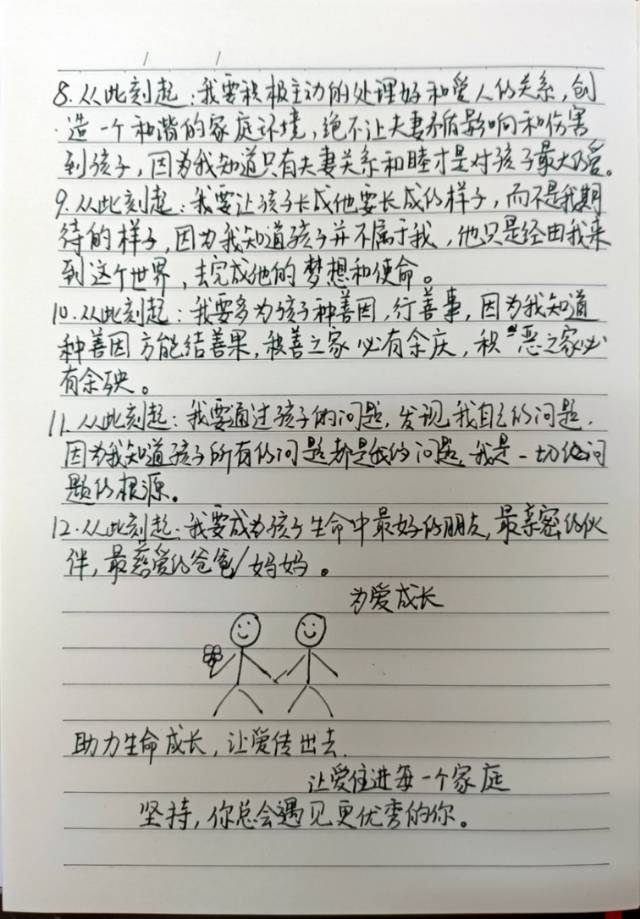 8.从此刻起:我要积极主动的处理好和爱人的关系,创
造一个和谐的家庭环境,绝不让夫妻矛盾影响和伤害
到孩子,因为我知道只有夫妻关系和睦才是对孩子最大的爱。
9.从此刻起:我要让孩子长成他要长成的样子,而不是我期
待的样子,因为我知道孩子并不属于我,他只是经由我来
到这个世界,去完成他的梦想和使命。
10.从此刻起:我要多为孩子种善因,行善事,因为我知道
种善因方能结善果,积善之家必有余庆,积恶之家必
有余殃。
11.从此刻起:我要通过孩子的问题,发现我自己的问题.
因为我知道孩子所有的问题都是我的问题,我是一切的问
题的根源。
12.从此刻起:我要成为孩子生命中最好的朋友,最亲密的伙
伴,最慈爱的爸爸/妈妈。
为爱成长
助力生命成长,让爱传出去.
让爱住进每一个家庭
坚持,你总会遇见更优秀的你。